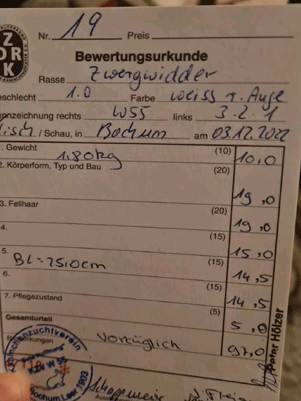 ZDRK
Nr. 19 Preis
Bewertungsurkunde
Rasse Zwergwidder
eschlecht 1.0 Farbe weiss r. Auge
nnzeichnung rechts W55 links 3.2.1
Tisch / Schau, in Bochum am 03.12.2022
1. Gewicht 1,80kg (10) 10,0
2. Körperform, Typ und Bau (20) 19,0
3. Fellhaar (20) 19,0
4. (15) 15,0
5. BL = 25,0cm (15) 14,5
6. (15) 14,5
7. Pflegezustand (5) 5,0
Gesamturteil
Vorzüglich 97,0
Peter Hölzer
ninchenzuchtverein
W 55
Bochum
1903